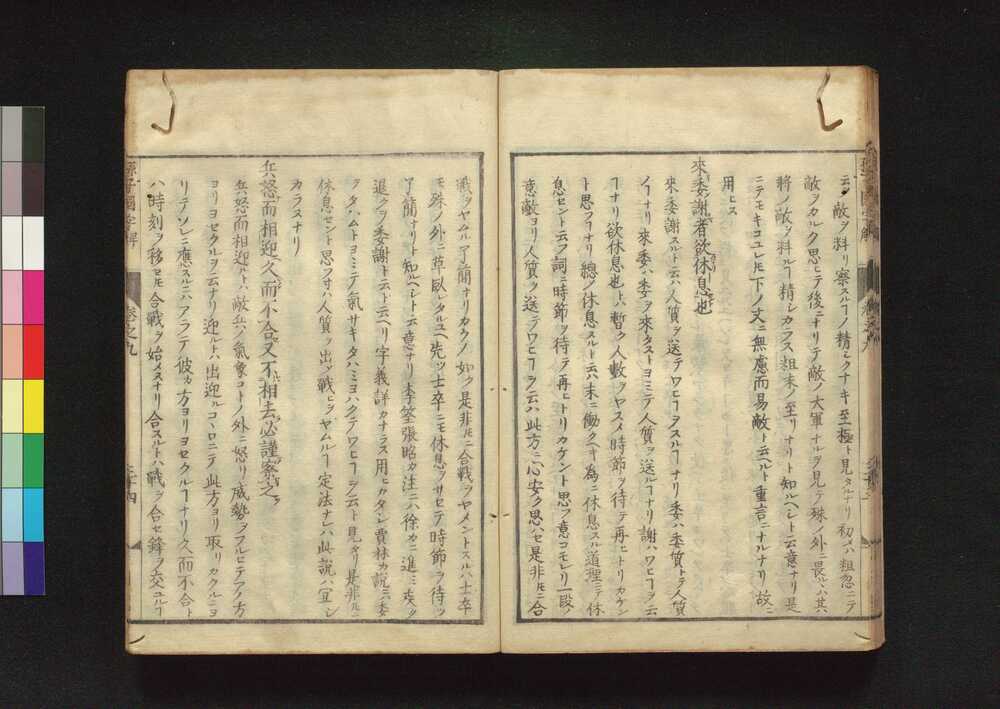 云ハ敵ヲ料リ察スルフノ精シクナキ至極ト見タルナリ初メハ粗忽ニテ
敵ヲカルク思ヒテ後ニナリテ敵ノ大軍ナルヲ見テ殊ノ外ニ畏ルヽハ其
將ノ敵ヲ料ルフ精シカラス粗末ノ至リナリト知ルヘシト云意ナリ是
ニテモキコユレ𪜈下ノ文ニ無慮而易敵ト云ヘルト重言ニナルナリ故ニ
用ヒス
來委謝者欲休息也
來委謝スルト云ハ人質ヲ送テワヒフヲスルフナリ委ハ委質トテ人質
ノフナリ來委ハ委ヲ來タストヨミテ人質ヲ送ルフナリ謝ハワヒフヲ云
フナリ欲休息也トハ暫ク人數ヲヤスメ時節ヲ待テ再ヒトリカケン
ト思フナリ總ノ休息スルト云ハ末ニ働クヘキ為ニ休息スル道理ニテ休
息セント云フ詞ニ時節ヲ待テ再ヒトリカケント思フ意コモレリ一段ノ
意敵ヨリ人質ヲ送テワヒフヲ云ハ此方ニ心安ク思ハセ是非𪜈ニ合
戰ヲヤムル了簡ナリカクノ如ク是非𪜈ニ合戰ヲヤメントスルハ士卒
モ殊ノ外ニ草臥レタルユヘ先ツ士卒ニモ休息ヲサセテ時節ヲ待ツ
了簡ナリト知ルヘシト云意ナリ李筌張昭カ注ニハ徐カニ進ミ疾ク
退クヲ委謝ト云ト云ヘリ字義詳カナラス用ヒカタシ賈林カ説ニハ委
ヲタハムトヨミテ氣サキタハミヨハクテワヒフヲ云ト見タリ是非𪜈ニ
休息セント思フ寸ハ人質ヲ出シ戰ヒヲヤムルフ定法ナレハ此説ハ宜シ
カラスナリ
兵怒而相迎久而不合又不相去必謹察之
兵怒而相迎ルトハ敵兵ノ氣象コトノ外ニ怒リ威勢ヲフルヒテアノ方
ヨリヨセクルヲ云ナリ迎ルトハ出迎ルコヽロニテ此方ヨリ取リカクルニヨ
リテソレニ應スルニハアラテ彼カ方ヨリヨセクルフナリ久而不合ト
ハ時刻ヲ移セ𪜈合戰ヲ始メヌナリ合スルトハ戰ヲ合セ鋒ヲ交ユルフ
孫子國字解
卷之九